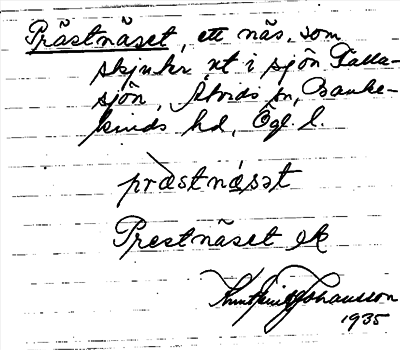 Prästnäset, ett näs, som
skjuter ut i sjön Falla-
sjön, Åtvids sn, Banke-
kinds hd, Ögl. l.
præstnä̀sət
Prestnäset
Johansson
1935